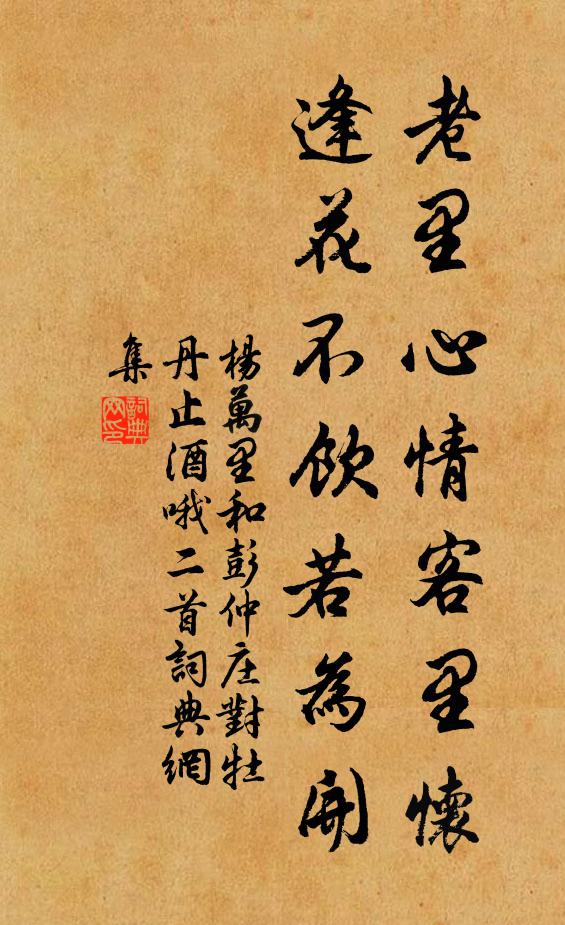 老里心情客里懷
逢花不飲若為開
楊萬里和彭仲庄對牡
丹止酒哦二首詞典網
集
詞典
网印